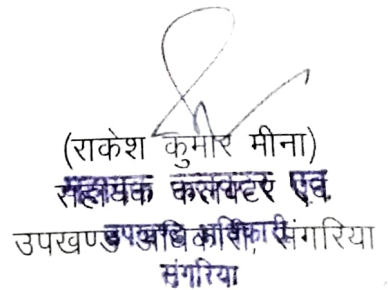 (राकेश कुमार मीना)
सहायक कलक्टर एवं
उपखण्ड अधिकारी, संगरिया
संगरिया